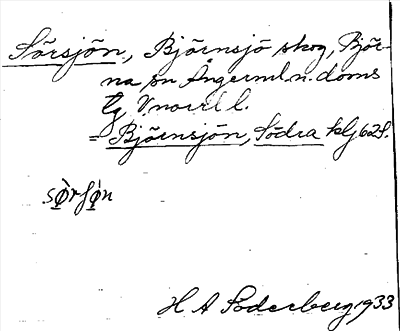 Sörsjön, Björnsjö skog, Björ-
na sn Ångerml. n. doms
tg V:norrl l.
= Björnsjön, Södra klj 62S.
H A Söderberg 1933